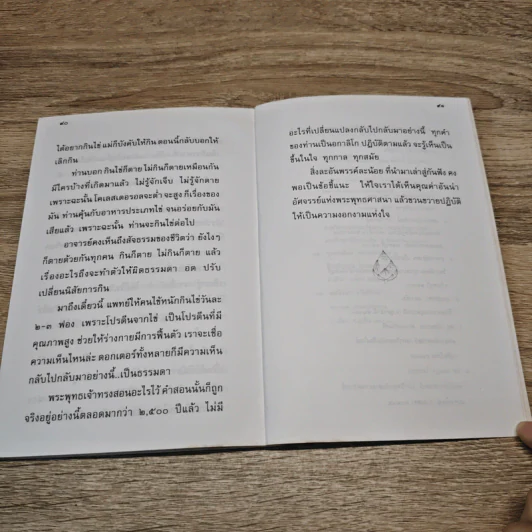 ๘๐
ได้อยากกินไข่ แม่ก็บังคับให้กิน ตอนนี้กลับบอกให้
เลิกกิน
ท่านบอก กินไข่ก็ตาย ไม่กินก็ตายเหมือนกัน
มีใครบ้างที่เกิดมาแล้ว ไม่รู้จักเจ็บ ไม่รู้จักตาย
เพราะฉะนั้น โคเลสเตอรอลจะต่ำ จะสูง ก็เรื่องของ
มัน ท่านคุ้นกับอาหารประเภทไข่ จนอร่อยกับมัน
เสียแล้ว เพราะฉะนั้น ท่านจะกินไข่ต่อไป
อาจารย์คงเห็นถึงสัจธรรมของชีวิตว่า ยังไงๆ
ก็ตายด้วยกันทุกคน กินก็ตาย ไม่กินก็ตาย แล้ว
เรื่องอะไรถึงจะทำตัวให้ผิดธรรมดา อด ปรับ
เปลี่ยนนิสัยการกิน
มาถึงเดี๋ยวนี้ แพทย์ให้คนไข้หนักกินไข่วันละ
๒-๓ ฟอง เพราะโปรตีนจากไข่ เป็นโปรตีนที่มี
คุณภาพสูง ช่วยให้ร่างกายมีการฟื้นตัว เราจะเชื่อ
ความเห็นไหนล่ะ ดอกเตอร์ทั้งหลายก็มีความเห็น
กลับไปกลับมาอย่างนี้...เป็นธรรมดา
พระพุทธเจ้าทรงสอนอะไรไว้ คำสอนนั้นก็ถูก
จริงอยู่อย่างนี้ตลอดมากว่า ๒,๕๐๐ ปีแล้ว ไม่มี
๘๑
อะไรที่เปลี่ยนแปลงกลับไปกลับมาอย่างนี้ ทุกคำ
ของท่านเป็นอกาลิโก ปฏิบัติตามแล้ว จะรู้เห็นเป็น
ขึ้นในใจ ทุกกาล ทุกสมัย
สิ่งละอันพรรค์ละน้อย ที่นำมาเล่าสู่กันฟัง คง
พอเป็นข้อชี้แนะ ให้ใจเราได้เห็นคุณค่าอันน่า
อัศจรรย์แห่งพระพุทธศาสนา แล้วขวนขวายปฏิบัติ
ให้เป็นความงอกงามแห่งใจ